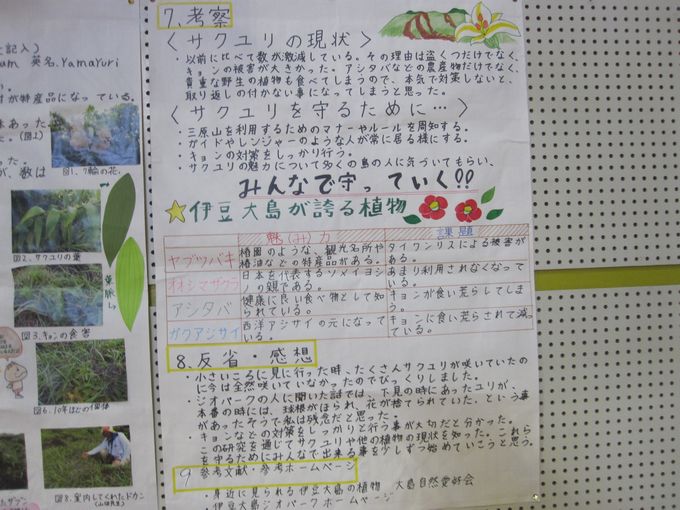 7.考察
〈サクユリの現状〉
・以前に比べて数が激減している。その理由は盗くつだけでなく、
キョンの被害が大きかった。アシタバなどの農産物だけでなく、
貴重な野生の植物も食べてしまうので、本気で対策しないと、
取り返しの付かない事になってしまうと思った。
〈サクユリを守るために…〉
・三原山を利用するためのマナーやルールを周知する。
・ガイドやレンジャーのような人が常に居る様にする。
・キョンの対策をしっかり行う。
・サクユリの魅力について多くの島の人に気づいてもらい、
みんなで守っていく!!
☆伊豆大島が誇る植物
魅(み)力 課題
ヤブツバキ 椿園のような、観光名所や タイワンリスによる被害が
椿油などの特産品がある。 ある。
オオシマザクラ 日本を代表するソメイヨシ あまり利用されなくなって
ノの親である。 いる。
アシタバ 健康に良い食べ物として知 キョンが食い荒らしてしま
られている。 う。
ガクアジサイ 西洋アジサイの元になって キョンに食い荒らされて減っ
いる。 ている。
8.反省・感想
・小さいころに見に行った時、たくさんサクユリが咲いていたの
に今は全然咲いていなかったのでびっくりしました。
・ジオパークの人に聞いた話では、下見の時にあったユリが、
本番の時には、球根がほられ、花が捨てられていた、という事
があったそうで私は残念だと思った。
・キョンなどの対策をしっかりと行う事が大切だと分かった。
この研究を通じてサクユリや他の植物の現状を知った。これら
を守るためにみんなで出来る事を少しずつ始めていこうと思う。
9 参考文献・参考ホームページ
・身近に見られる伊豆大島の植物 大島自然愛好会
・伊豆大島ジオパークホームページ
記入)
um 英名.Yamayuri
が特産品になっている。
あった。
(図2)
った。
が、数は
図1.7輪の花.
図2.サクユリの葉
葉脈
図3.キョンの食害
図6.10年ほどの個体
図8.案内してくれたドカン